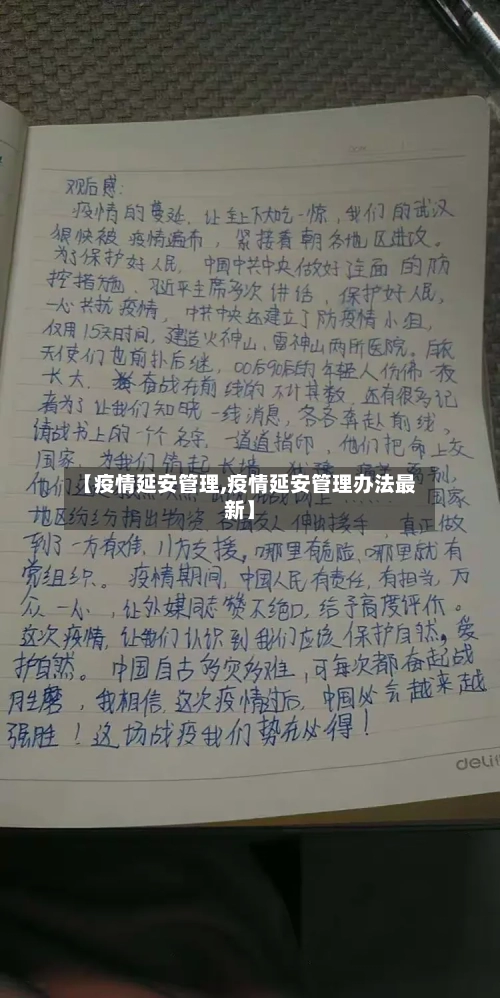 观后感:
疫情的蔓延,让全上下大吃一惊,我们的武汉
狠快被疫情遍布,紧接着朝各地区进攻。
为了保护好人民,中国中共中央做好注面的防
控措施、习近平主席多次讲话,保护好人民,
一心共抗疫情,中共中央还建立了防疫情小组,
仅用15天时间,建造火神山、雷神山两所医院。
天使们也前扑后继,00后90后的年轻人仿佛一夜
长大,奋战在前线的不计其数,还有很多记
者为了让我们知晓一线消息,各各奔赴前线,
请战书上的一个个名字,一道道指印,他们把命上交
国家,为我们筑起长城
【疫情延安管理,疫情延安管理办法最
新】
国家
地区纷纷捐出物资,伸出援手,真正做
到了一方有难,八方支援,哪里有危险,哪里就有
党组织。疫情期间,中国人民有责任,有担当,万
众一心,让外媒同志赞不绝口,给予高度评价。
这次疫情,让我们认识到我们应该保护自然,爱
护自然。中国自古多灾多难,可每次都奋起战
胜磨,我相信,这次疫情过后,中国必会越来越
强胜!这场战疫我们势在必得!
deli